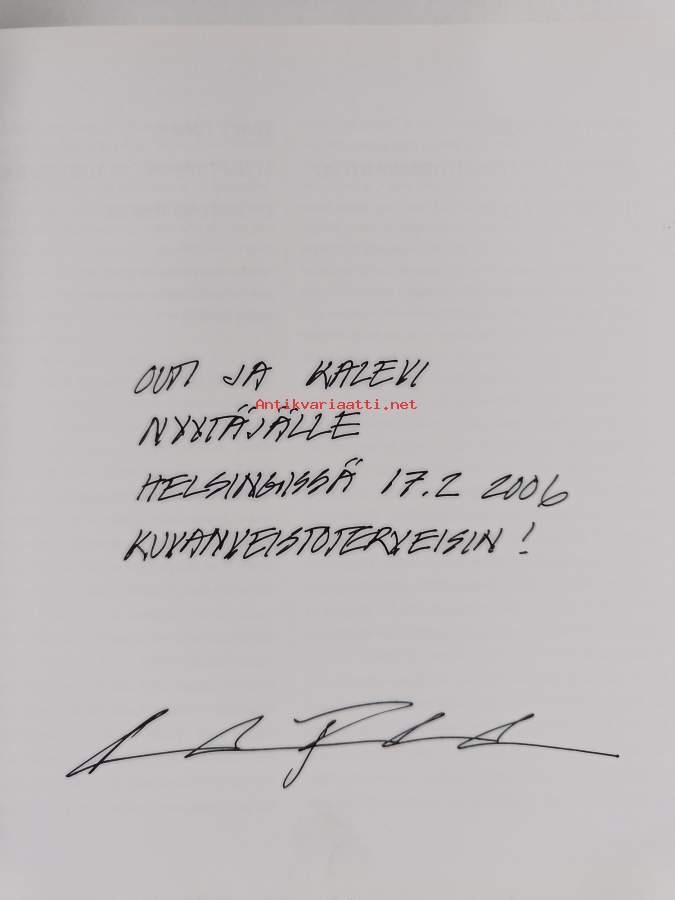 OUTI JA KALEVI
Antikvariaatti.net
NYYTÄJÄLLE
HELSINGISSÄ 17.2 2006
KUVANVEISTOTERVEISIN!